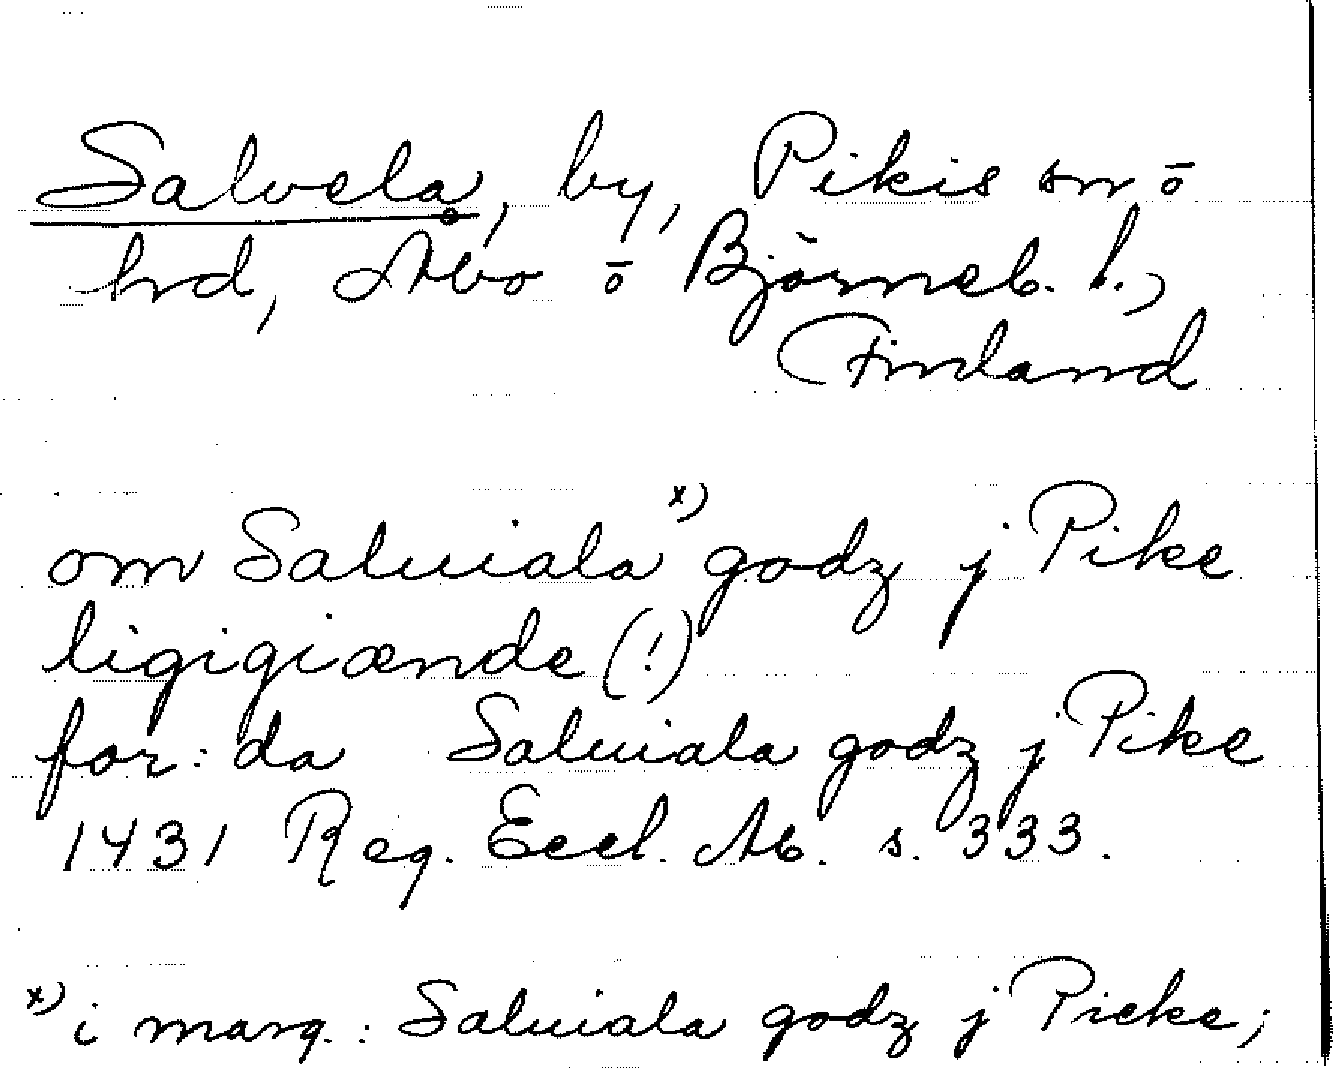 Salvela, by, Pikis sn o
hrd, Åbo o Björneb. l.,
Finland
om Saluiala x) godz j Pike
ligigiænde (!)
for: da Saluiala godz j Pike
1431 Reg. Eccl. Ab. s. 333.
x) i marg.: Saluiala godz j Pieke;